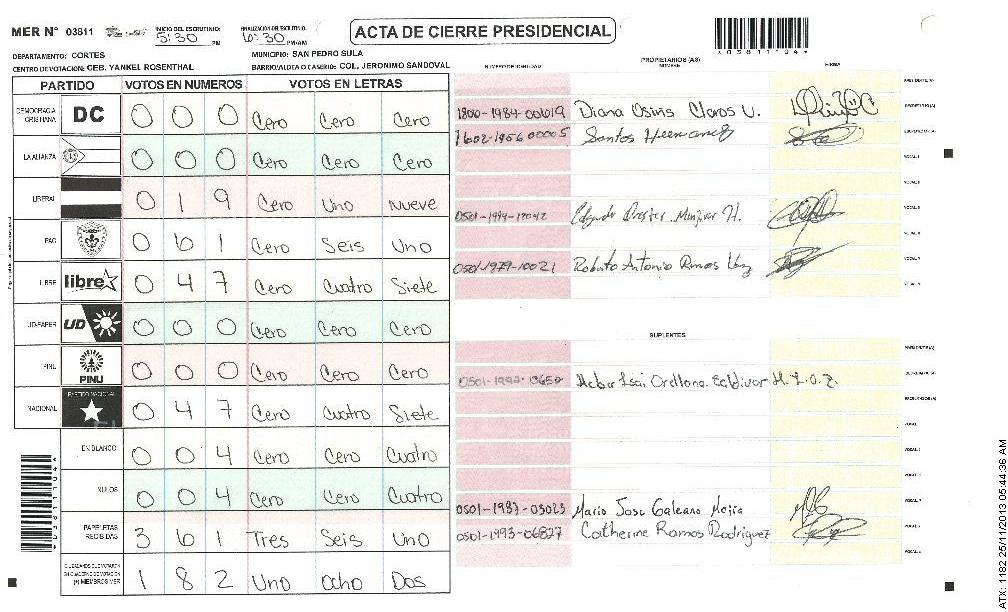 MER N° 03811 INICIO DEL ESCRUTINIO: 5:30 PM FINALIZACION DEL ESCRUTINIO: 6:30 PM/AM
ACTA DE CIERRE PRESIDENCIAL
*03811041*
DEPARTAMENTO: CORTES MUNICIPIO: SAN PEDRO SULA
CENTRO DE VOTACION: CEB. YANKEL ROSENTHAL BARRIO/ALDEA O CASERIO: COL. JERONIMO SANDOVAL
PARTIDO VOTOS EN NUMEROS VOTOS EN LETRAS
DEMOCRACIA CRISTIANA DC 0 0 0 Cero Cero Cero
LA ALIANZA 0 0 0 Cero Cero Cero
LIBERAL 0 1 9 Cero Uno Nueve
PAC 0 6 1 Cero Seis Uno
LIBRE libre 0 4 7 Cero Cuatro Siete
UD-FAPER UD 0 0 0 Cero Cero Cero
PINU PINU 0 0 0 Cero Cero Cero
NACIONAL PARTIDO NACIONAL 0 4 7 Cero Cuatro Siete
EN BLANCO 0 0 4 Cero Cero Cuatro
NULOS 0 0 4 Cero Cero Cuatro
PAPELETAS RECIBIDAS 3 6 1 Tres Seis Uno
CIUDADANOS QUE VOTARON EN CUADERNO DE VOTACION (+) MIEMBROS MER 1 8 2 Uno Ocho Dos
PROPIETARIOS (AS)
NUMERO DE IDENTIDAD NOMBRE FIRMA
PRESIDENTE(A)
1800-1984-00619 Diana Osiris Claros U. SECRETARIO(A)
1602-1956 00005 Santos Hernandez ESCRUTADOR(A)
VOCAL I
VOCAL II
0501-1994-12042 Edgardo Menjivar H.
0501-1979-10021 Roberto Antonio Ramos
SUPLENTES
PRESIDENTE(A)
Heber Isai Orellana SECRETARIO(A)
ESCRUTADOR(A)
0501-1987-03023 Mario Jose Galeano Mejia
0501-1993-06827 Catherine Ramos Rodriguez
ATX: 1182 25/11/2013 05:44:36 AM